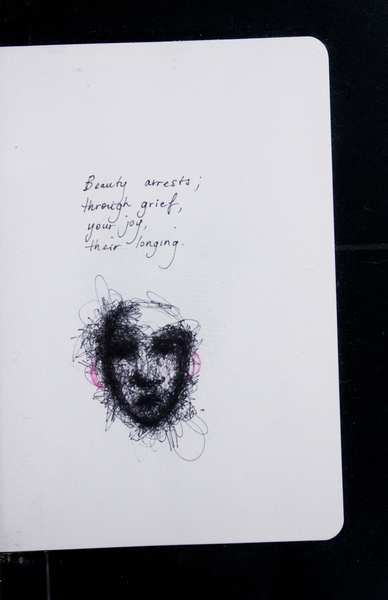 Beauty arrests;
through grief,
your joy,
their longing.